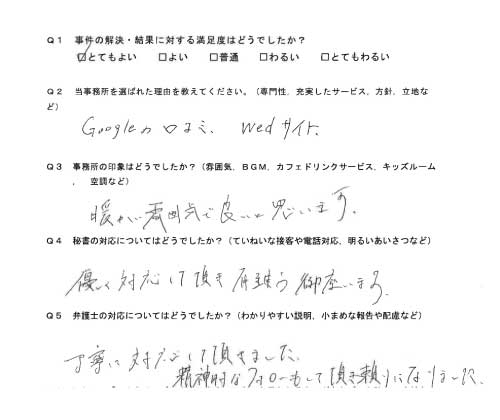 Q1 事件の解決・結果に対する満足度はどうでしたか?
☑とてもよい □よい □普通 □わるい □とてもわるい
Q2 当事務所を選ばれた理由を教えてください。(専門性、充実したサービス、方針、立地な
ど)
Googleの口コミ、Wedサイト、
Q3 事務所の印象はどうでしたか?(雰囲気、BGM、カフェドリンクサービス、キッズルーム
、 空調など)
暖かい雰囲気で良いと思います。
Q4 秘書の対応についてはどうでしたか?(ていねいな接客や電話対応、明るいあいさつなど)
優しく対応して頂き有難う御座います。
Q5 弁護士の対応についてはどうでしたか?(わかりやすい説明、小まめな報告や配慮など)
丁寧に対応して頂きました。
精神的なフォローもして頂き頼りになりました。